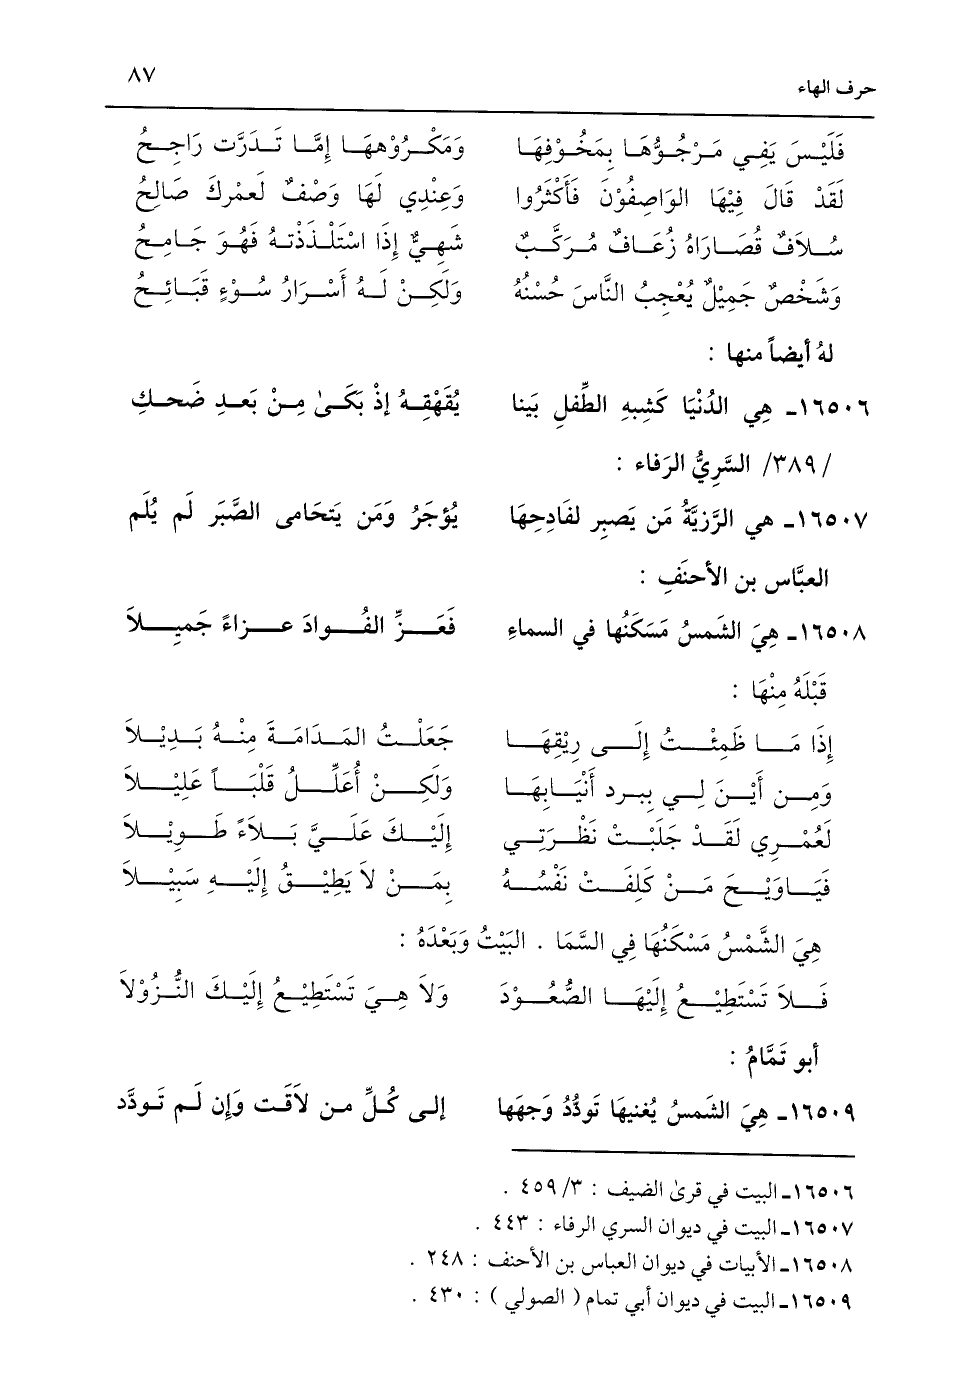 حرف الهاء ٨٧
فَلَيْسَ يَفِي مَرْجُوُّهَا بِمَخُوْفِهَا وَمَكْرُوْهِهَا إِمَّا تَدَرَّت رَاجِحُ
لَقَدْ قَالَ فِيْهَا الوَاصِفُوْنَ فَأَكْثَرُوا وَعِنْدِي لَهَا وَصْفٌ لَعَمْركَ صَالِحُ
سُلاَفٌ قُصَارَاهُ زُعَافٌ مُرَكَّبٌ شَهِيٌّ إِذَا اسْتَلْذَذْتهُ فَهُوَ جَامِحُ
وَشَخْصٌ جَمِيْلٌ يُعْجِبُ النَّاسَ حُسْنُهُ وَلَكِنْ لَهُ أَسْرَارُ سُوْءٍ قَبَائِحُ
لهُ أيضاً منها :
١٦٥٠٦ـ هِي الدُنْيَا كَشِبهِ الطِّفلِ بَينا يُقَهْقِهُ إِذْ بَكَىٰ مِنْ بَعدِ ضَحكِ
/٣٨٩/ السَّرِيُّ الرَفاء :
١٦٥٠٧ـ هي الرَّزيَّةُ مَن يَصبِر لفَادِحِهَا يُؤجَرُ وَمَن يَتحَامى الصَّبَر لَم يُلَم
العبَّاس بن الأحنَفِ :
١٦٥٠٨ـ هِيَ الشَمسُ مَسَكنُها في السماءِ فَعَزِّ الفُوادَ عزاءً جَميلاَ
قَبْلَهُ مِنْهَا :
إِذَا مَا ظَمِئْتُ إِلَى رِيْقِهَا جَعَلْتُ المَدَامَةَ مِنْهُ بَدِيْلاَ
وَمِن أَيْنَ لِي بِبرد أَنْيَابِهَا وَلَكِنْ أُعَلِّلُ قَلْبَاً عَلِيْلاَ
لَعُمْرِي لَقَدْ جَلَبْت نَظْرَتِي إِلَيْكَ عَلَيَّ بَلاَءً طَوِيْلاَ
فَيَاوَيْحَ مَنْ كَلِفَتْ نَفْسُهُ بِمَنْ لاَ يَطِيْقُ إِلَيْهِ سَبِيْلاَ
هِيَ الشَّمْسُ مَسْكَنُهَا فِي السَّمَا . البَيْتُ وَبَعْدَهُ :
فَلاَ تَسْتَطِيْعُ إِلَيْهَا الصُّعُوْدَ وَلاَ هِيَ تَسْتَطِيْعُ إِلَيْكَ النُّزُوْلاَ
أبو تَمَّامُ :
١٦٥٠٩ـ هِيَ الشَمسُ يُغنيهَا تَودُّدُ وَجهَها إلى كُلِّ من لاَقَت وَإن لَم تَودَّد
١٦٥٠٦ـ البيت في قرىٰ الضيف : ٣/ ٤٥٩ .
١٦٥٠٧ـ البيت في ديوان السري الرفاء : ٤٤٣ .
١٦٥٠٨ـ الأبيات في ديوان العباس بن الأحنف : ٢٤٨ .
١٦٥٠٩ـ البيت في ديوان أبي تمام ( الصولي ) : ٤٣٠ .